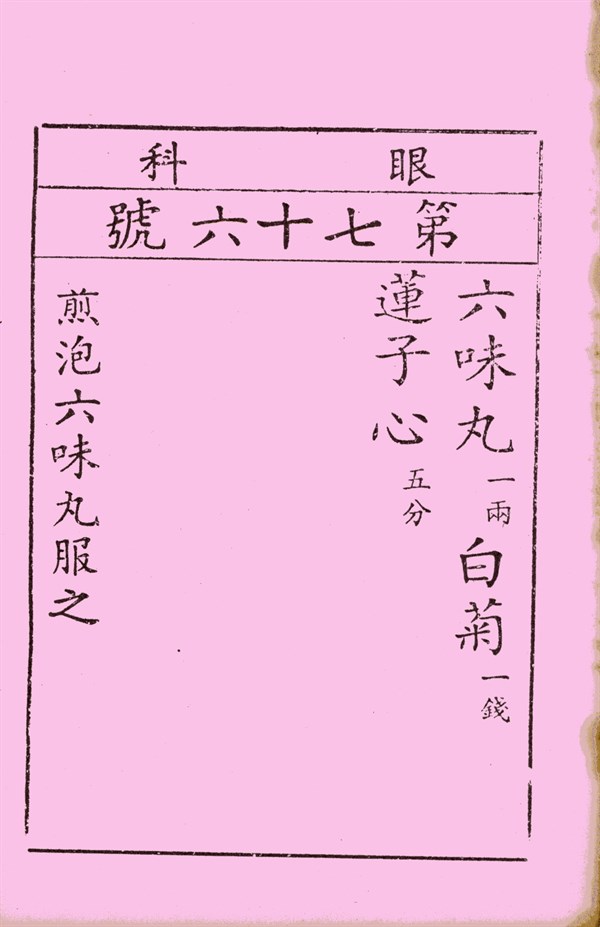 眼科
第七十六號
六味丸一兩白菊一錢
蓮子心五分
煎泡六味丸服之